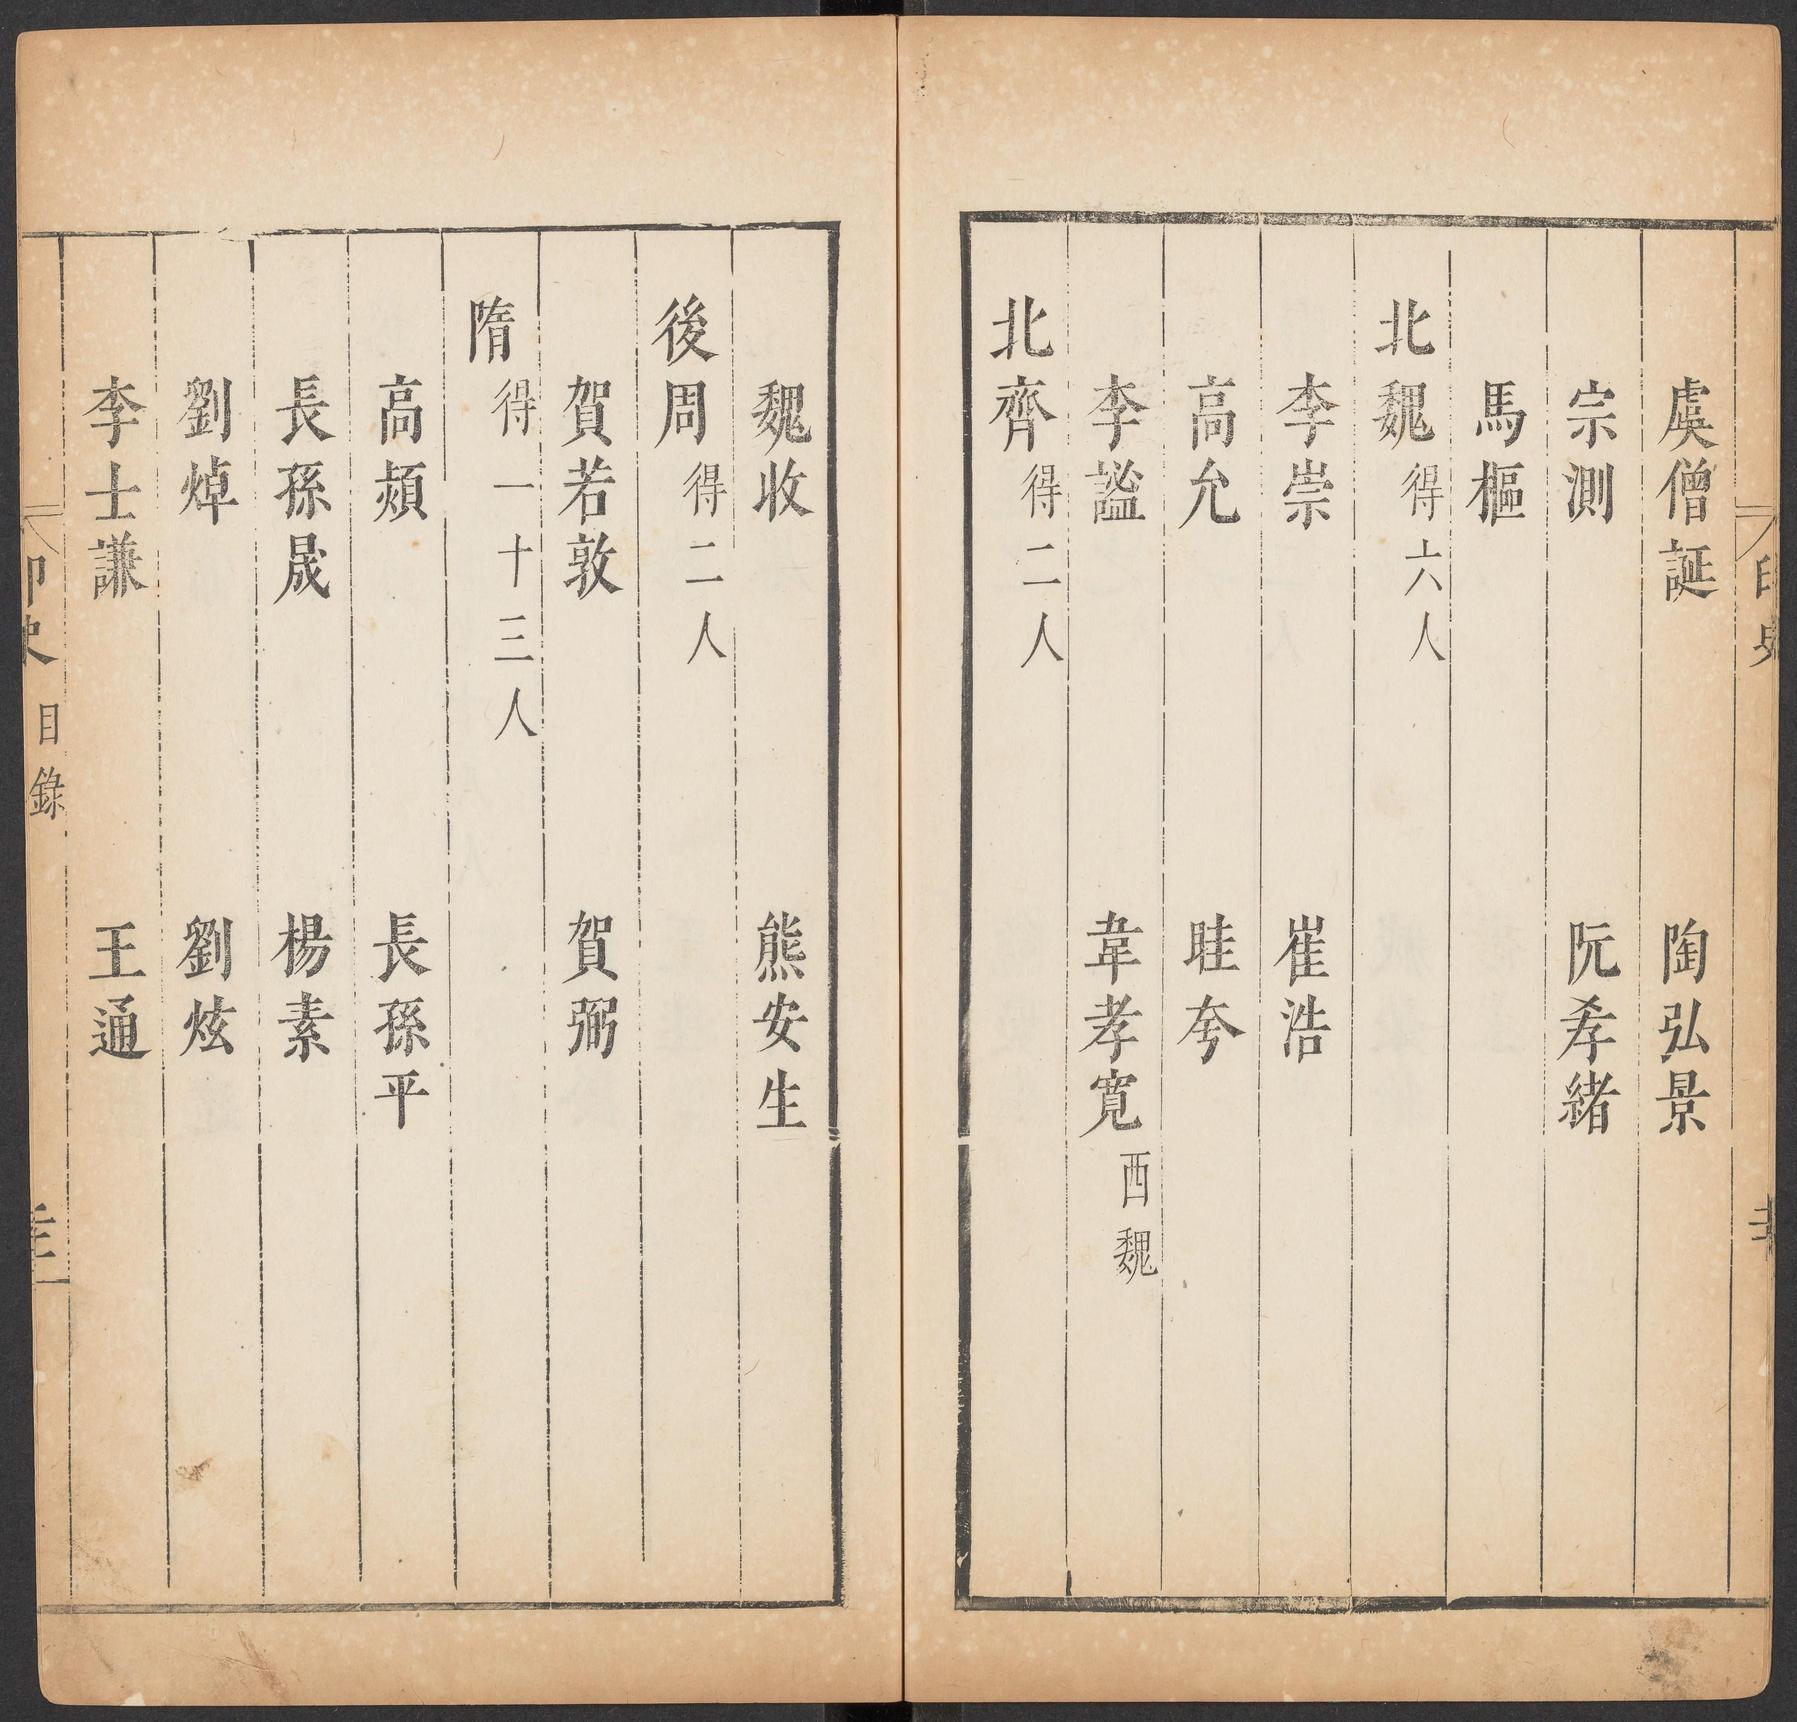 虞僧誕 陶弘景
宗測 阮孝緒
馬樞
北魏得六人
李崇 崔浩
高允 眭夸
李謐 韋孝寬西魏
北齊得二人
魏收 熊安生
後周得二人
賀若敦 賀弼
隋得一十三人
高熲 長孫平
長孫晟 楊素
劉焯 劉炫
李士謙 王通
印史 目錄